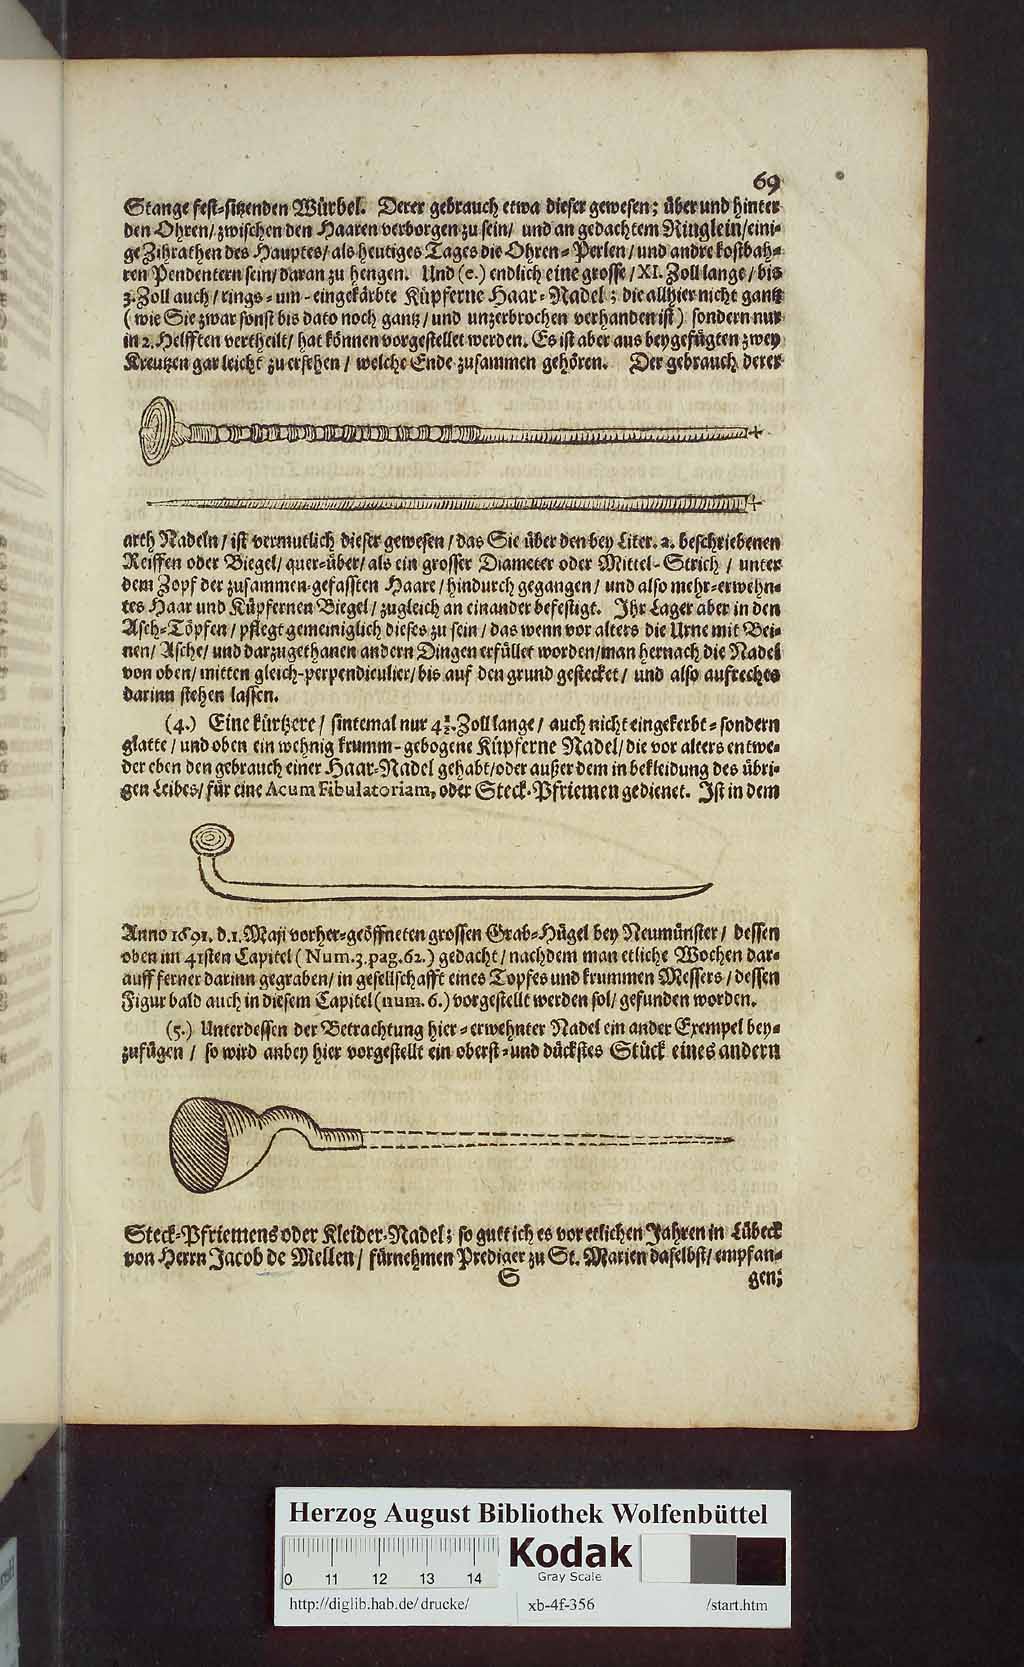 69
Stange fest-sitzenden Würbel. Derer gebrauch etwa dieser gewesen; über und hinter
den Ohren/ zwischen den Haaren verborgen zu sein/ und an gedachtem Ringlein/eini-
ge Zihrathen des Hauptes/ als heutiges Tages die Ohren-Perlen/ und andre kostbah-
ren Pendentern sein/ daran zu hengen. Und (e.) endlich eine grosse/ XI. Zoll lange/ bis
3. Zoll auch/ rings-um-eingekärbte Küpferne Haar-Nadel; die allhier nicht gantz
(wie Sie zwar sonst bis dato noch gantz/ und unzerbrochen verhanden ist) sondern nur
in 2. Helfften vertheilt/ hat können vorgestellet werden. Es ist aber aus beygefügten zwey
Kreutzen gar leicht zu ersehen/ welche Ende zusammen gehören. Der gebrauch derer
arth Nadeln/ ist vermutlich dieser gewesen/ das Sie über den bey Liter. a. beschriebenen
Reiffen oder Biegel/ quer-über/ als ein grosser Diameter oder Mittel-Strich/ unter
dem Zopf der zusammen-gefassten Haare/ hindurch gegangen/ und also mehr-erwehn-
tes Haar und Küpfernen Biegel/ zugleich an einander befestigt. Ihr Lager aber in den
Asch-Töpfen/ pflegt gemeiniglich dieses zu sein/ das wenn vor alters die Urne mit Bei-
nen/ Asche/ und darzugethanen andern Dingen erfüllet worden/man hernach die Nadel
von oben/ mitten gleich-perpendiculier/ bis auf den grund gestecket/ und also aufreches
darinn stehen lassen.
(4.) Eine kürtzere/ sintemal nur 4½. Zoll lange/ auch nicht eingekerbt-sondern
glatte/ und oben ein wehnig krumm-gebogene Küpferne Nadel/ die vor alters entwe-
der eben den gebrauch einer Haar-Nadel gehabt/oder außer dem in bekleidung des übri-
gen Leibes/ für eine Acum Fibulatoriam, oder Steck-Pfriemen gedienet. Ist in dem
Anno 1691. d. 1. Maji vorher-geöffneten grossen Grab-Hügel bey Neumünster/ dessen
oben im 41sten Capitel (Num. 3. pag. 62.) gedacht/ nachdem man etliche Wochen dar-
auff ferner darinn gegraben/ in gesellschafft eines Topfes und krummen Messers/ dessen
Figur bald auch in diesem Capitel (num. 6.) vorgestellt werden sol/ gefunden worden.
(5.) Unterdessen der Betrachtung hier-erwehnter Nadel ein ander Exempel bey-
zufügen/ so wird anbey hier vorgestellt ein oberst-und dückstes Stück eines andern
Steck-Pfriemens oder Kleider-Nadel; so gutt ich es vor etlichen Jahren in Lübeck
von Herrn Jacob de Mellen/ fürnehmen Prediger zu St. Marien daselbst/ empfan-
S gen;
Herzog August Bibliothek Wolfenbüttel
0 11 12 13 14
Kodak
Gray Scale
http://diglib.hab.de/drucke/ xb-4f-356 /start.htm